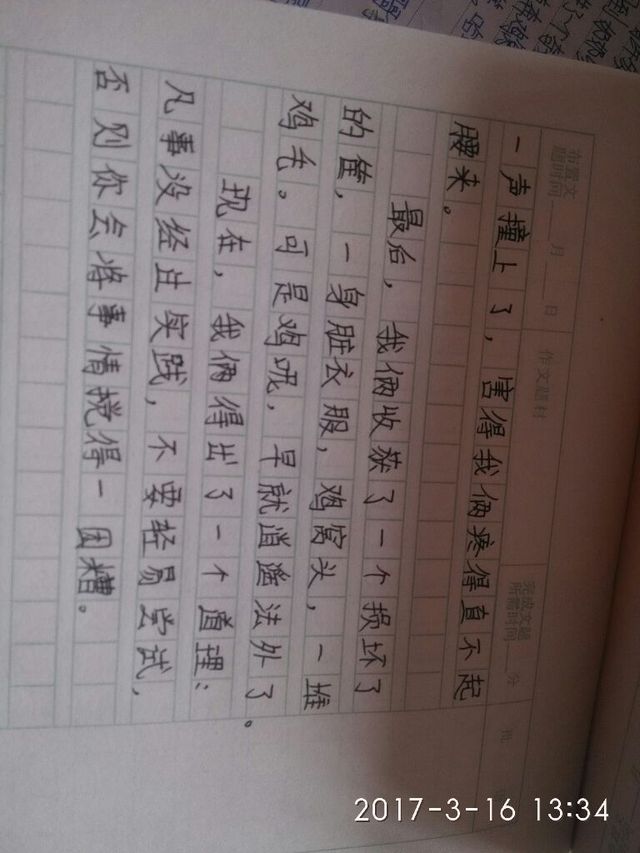 布置文题时间 月 日 作文题料 完成文题所需时间 分
一声撞上了，害得我俩疼得直不起
腰来。
最后，我俩收获了一个损坏了
的筐，一身脏衣服，鸡窝头，一堆
鸡毛。可是鸡呢，早就逍遥法外了。
现在，我俩得出了一个道理：
凡事没经过实践，不要轻易尝试，
否则你会将事情搅得一团糟。
2017-3-16 13:34